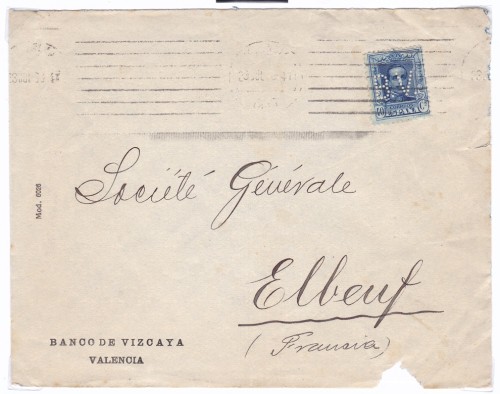 40 Cs
ESPAÑA
Société Générale
Elbeuf
(Francia)
Mod. 6026
BANCO DE VIZCAYA
VALENCIA